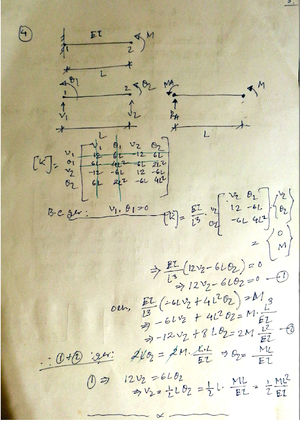 ④
EI
1 2 M
L
θ1 θ2 MA M
1 2
V1 V2 RA
L L
V1 θ1 V2 θ2
[K] =
V1 12 6L -12 6L
θ1 6L 4L² -6L 2L²
V2 -12 -6L 12 -6L
θ2 6L 2L² -6L 4L²
B.C. gives: V1, θ1 = 0
[K] = EI/L³
V2 θ2
V2 12 -6L
θ2 -6L 4L²
{V2 θ2}
= {0 M}
⇒ EI/L³ (12V2 - 6Lθ2) = 0
⇒ 12V2 - 6Lθ2 = 0 — ①
EI/L³ (-6LV2 + 4L²θ2) = M
⇒ -6LV2 + 4L²θ2 = M · L³/EI
⇒ -12V2 + 8Lθ2 = 2M L²/EI — ②
∴ ① + ② gives: 2Lθ2 = 2M · L·L/EI ⇒ θ2 = ML/EI
① ⇒ 12V2 = 6Lθ2
⇒ V2 = 1/2 Lθ2 = 1/2 L · ML/EI = 1/2 ML²/EI